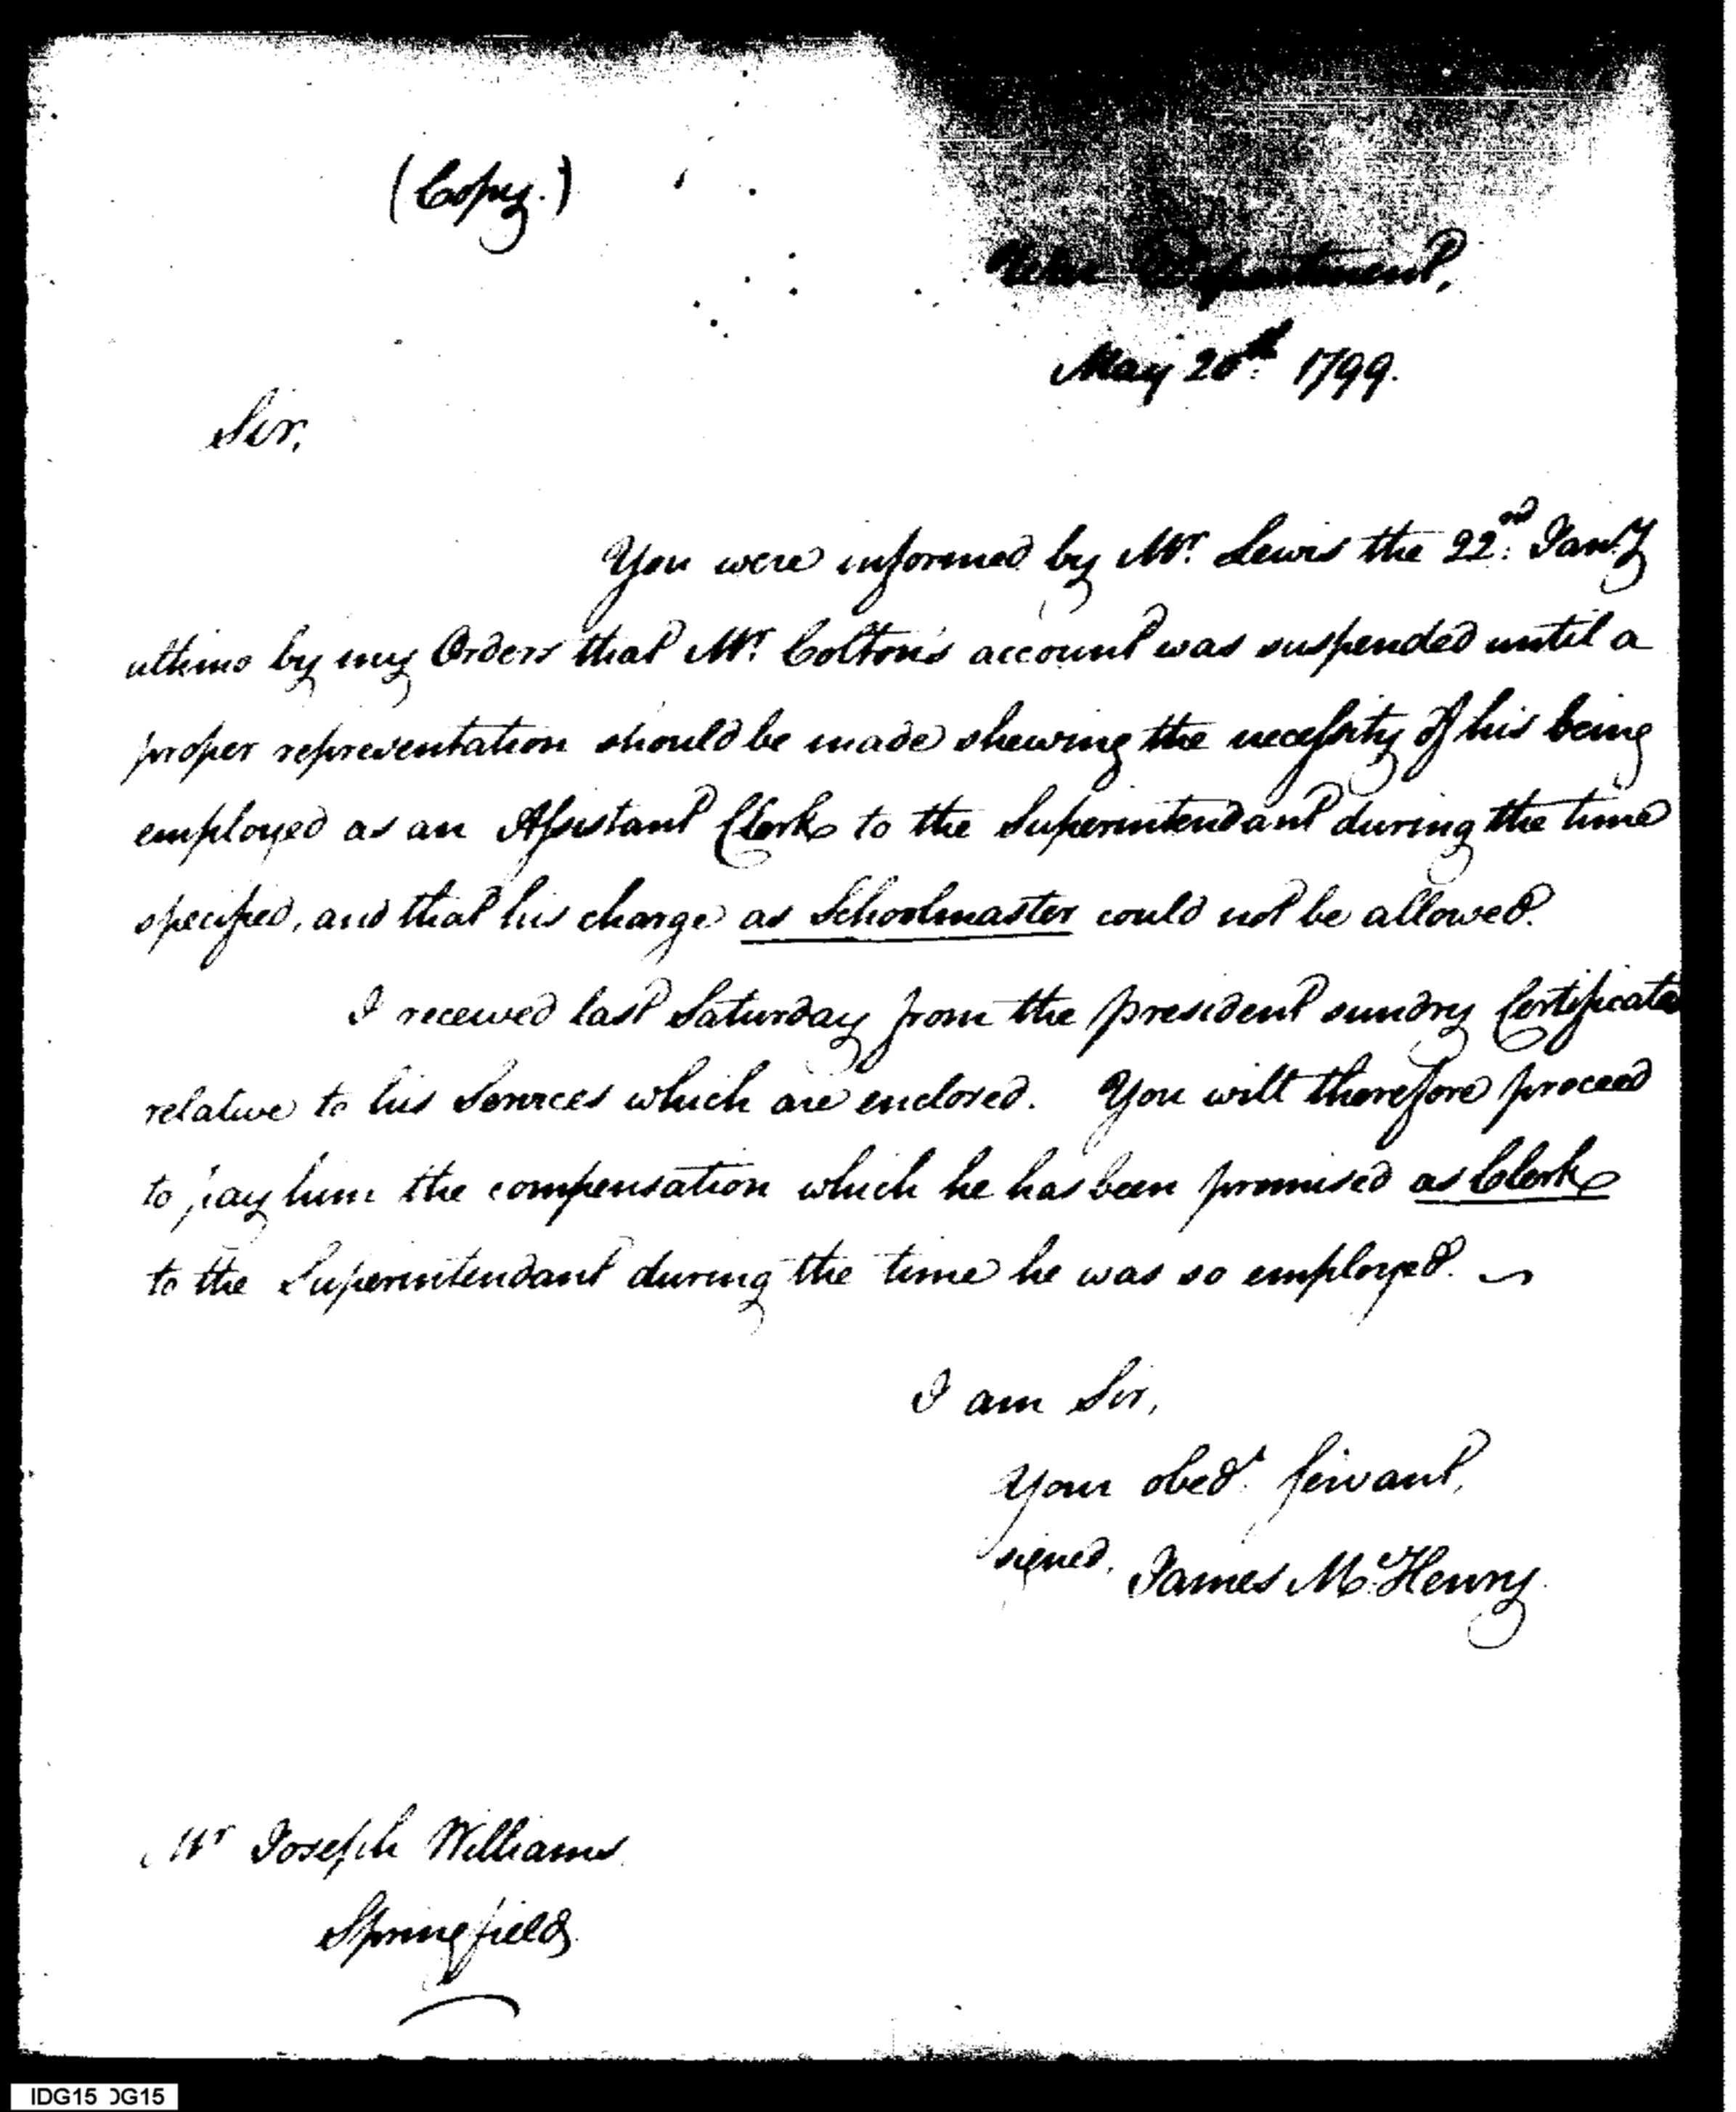 (Copy.)
War Department,
May 20th. 1799.
Sir,
You were informed by Mr. Lewis the 22nd. Jan.y
ultimo by my Orders that Mr. Colton's account was suspended until a
proper representation should be made shewing the necessity of his being
employed as an Assistant Clerk to the Superintendant during the time
specified, and that his charge as Schoolmaster could not be allowed.
I received last Saturday from the president sundry Certificates
relative to his Services which are enclosed. You will therefore proceed
to pay him the compensation which he has been promised as Clerk
to the Superintendant during the time he was so employed.
I am Sir,
Your obedt. servant,
signed, James McHenry
Mr Joseph Williams
Springfield
IDG15 IDG15